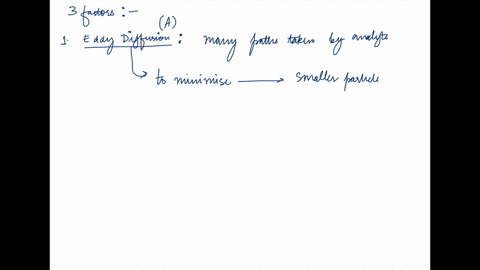 3 factors :-
(A)
1. Eddy Diffusion : many paths taken by analyte
to minimise → smaller particle